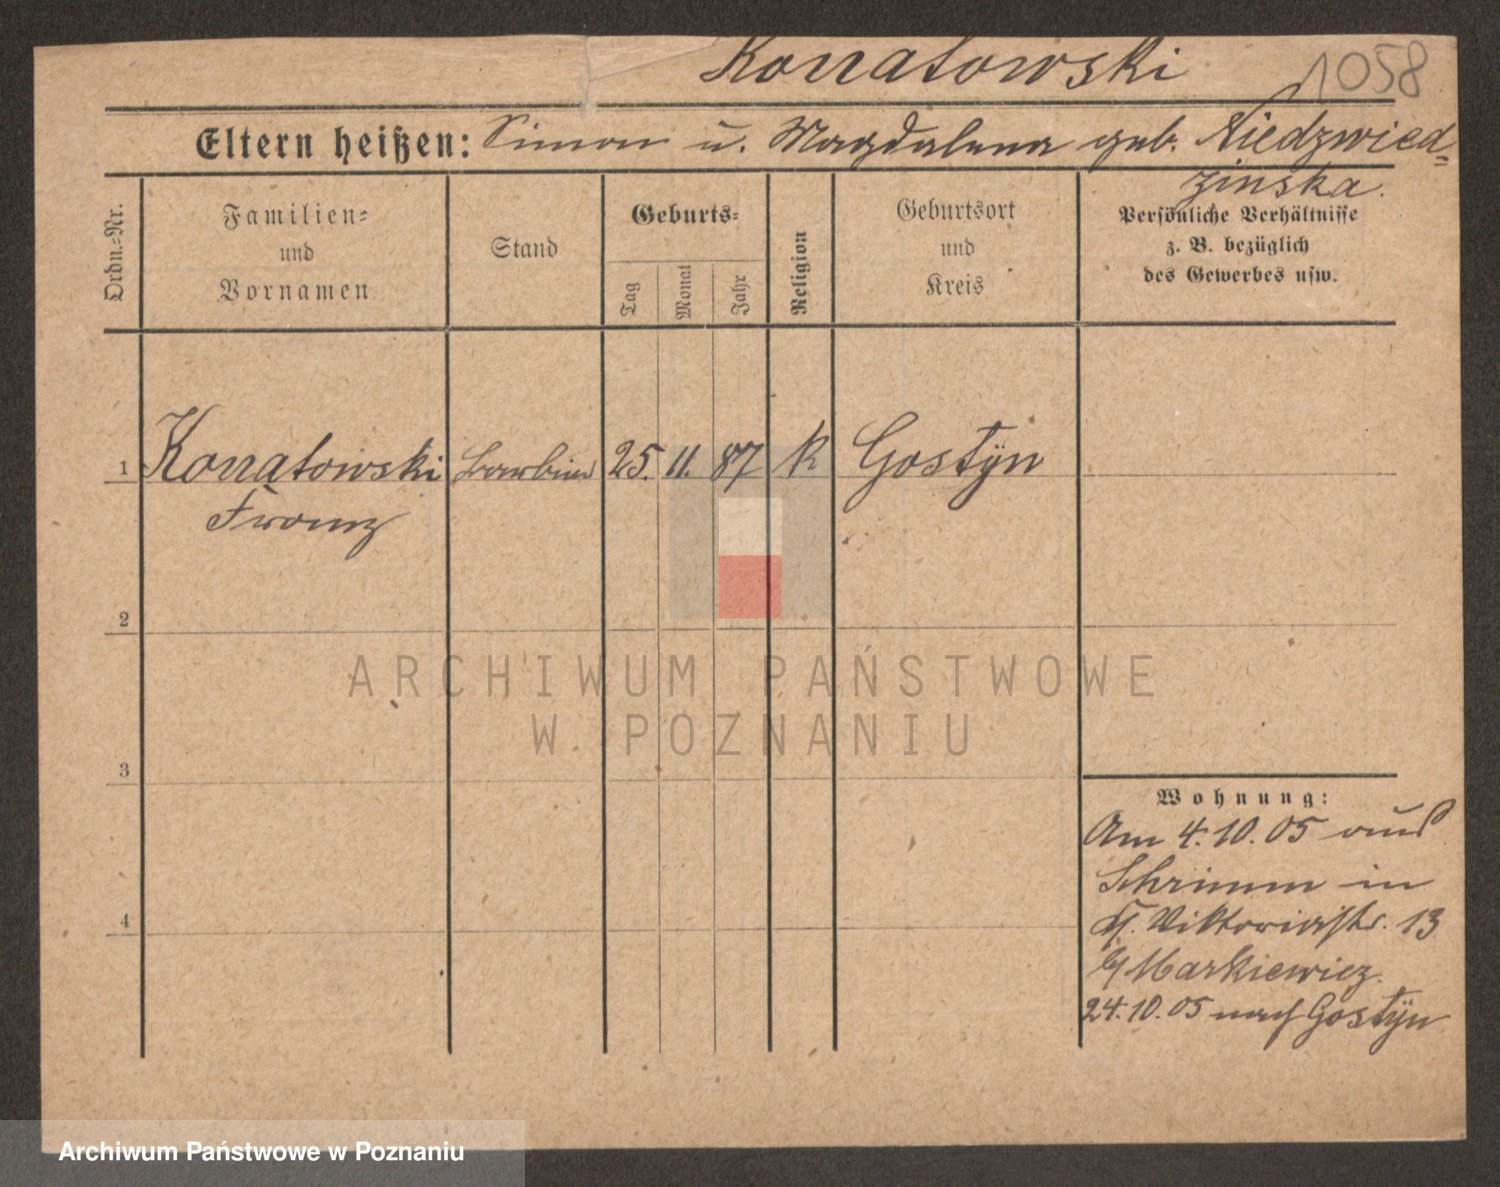 Konatowski
1058
Eltern heißen: Simon u. Magdalena geb. Niedzwied=
zinska.
Ordn.=Nr.
Familien=
und
Vornamen
Stand
Geburts=
Tag
Monat
Jahr
Religion
Geburtsort
und
Kreis
Persönliche Verhältnisse
z. B. bezüglich
des Gewerbes usw.
1 Konatowski 25. 11. 87 k Gostÿn
Franz
2
3
4
Wohnung:
Am 4.10.05 aus
Schrimm in
Viktoriastr. 13
b/ Markiewicz.
24.10.05 nach Gostÿn
ARCHIWUM PAŃSTWOWE
W POZNANIU
Archiwum Państwowe w Poznaniu